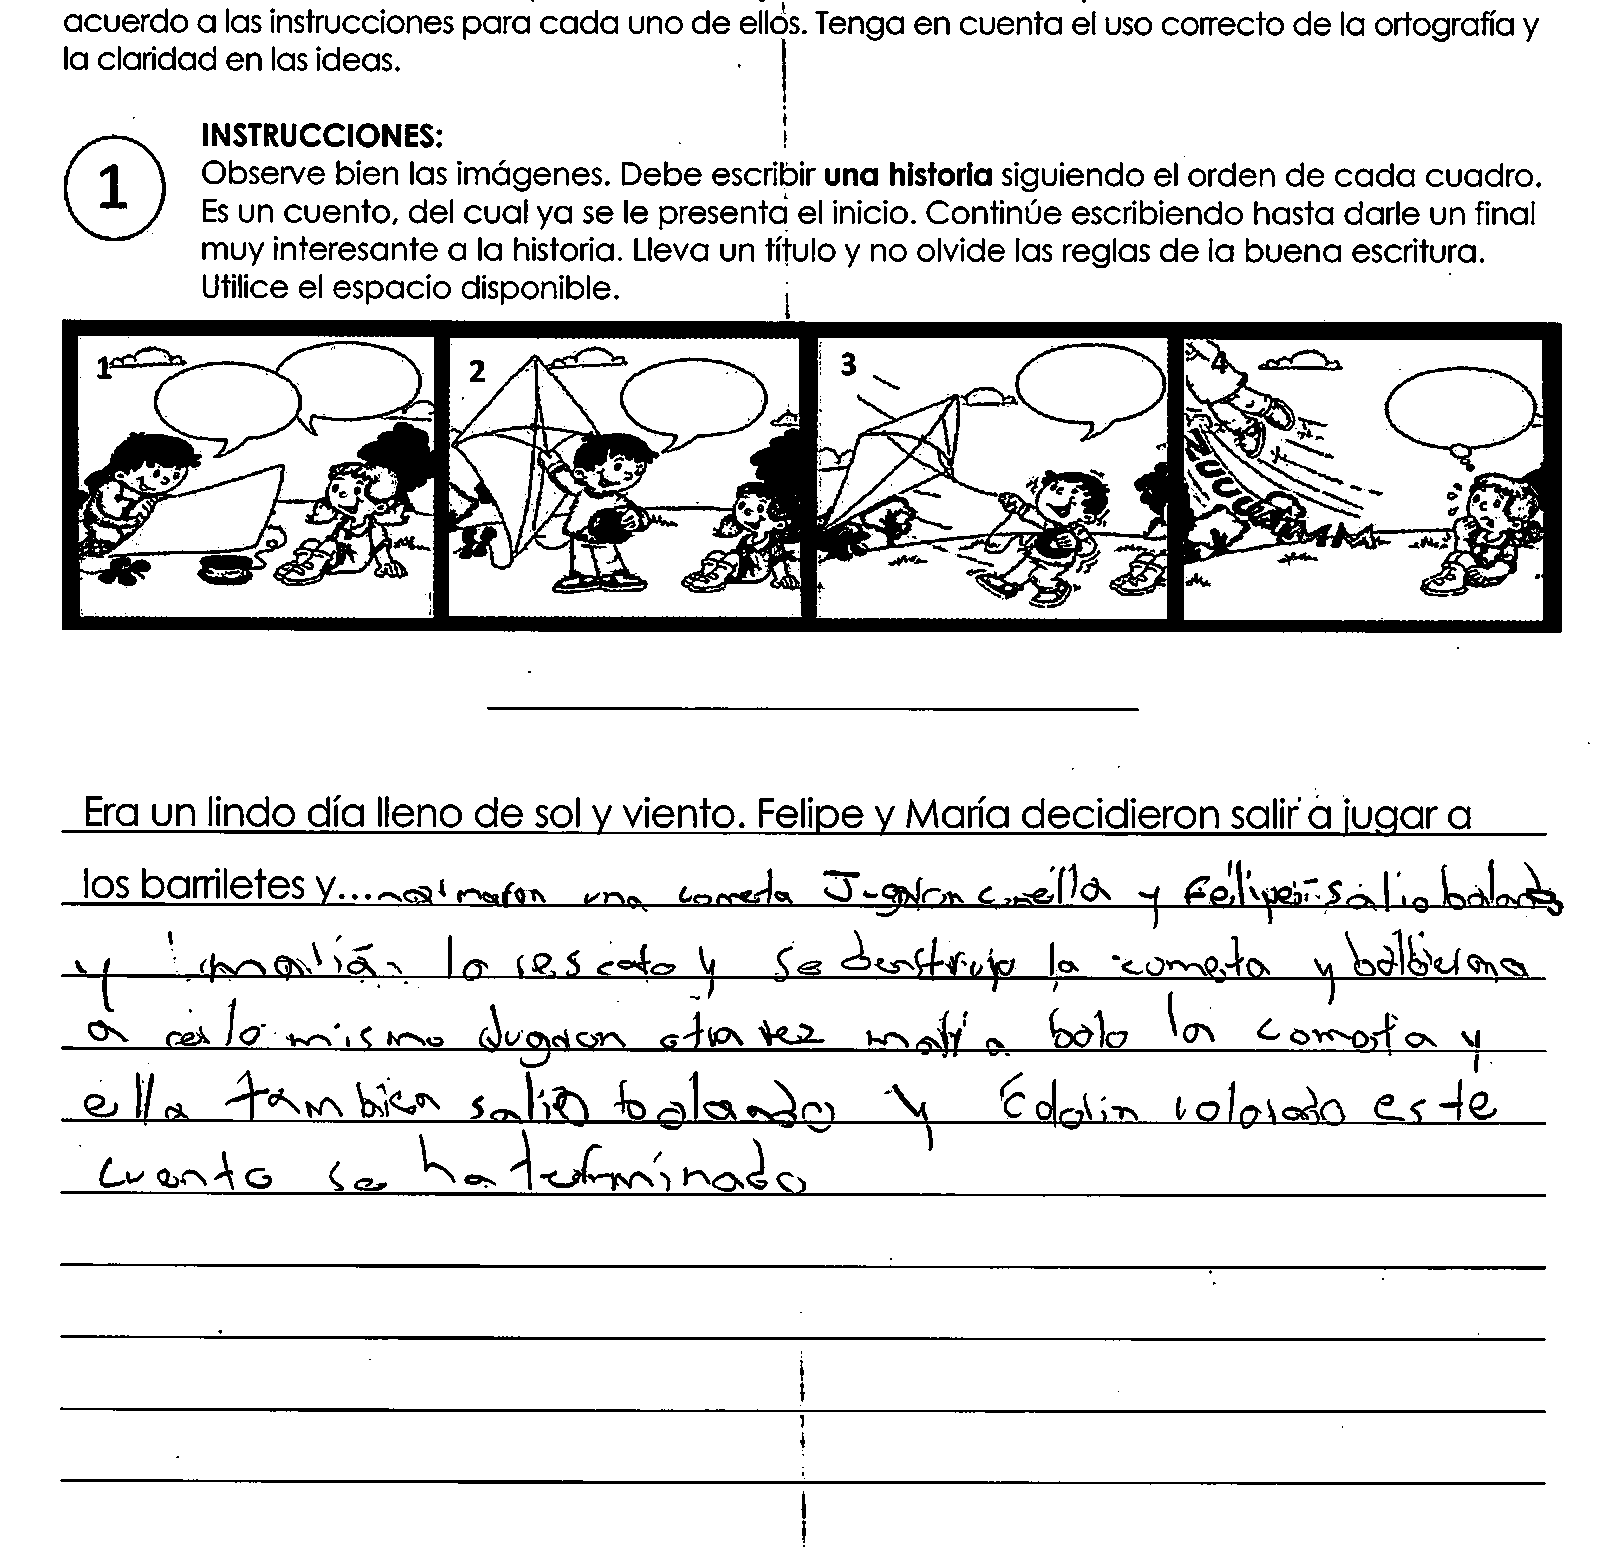 acuerdo a las instrucciones para cada uno de ellos. Tenga en cuenta el uso correcto de la ortografía y
la claridad en las ideas.
1
INSTRUCCIONES:
Observe bien las imágenes. Debe escribir una historia siguiendo el orden de cada cuadro.
Es un cuento, del cual ya se le presenta el inicio. Continúe escribiendo hasta darle un final
muy interesante a la historia. Lleva un título y no olvide las reglas de la buena escritura.
Utilice el espacio disponible.
1 2 3 4
Era un lindo día lleno de sol y viento. Felipe y María decidieron salir a jugar a
los barriletes y... una cometa Jugaron con ella y Felipe salio
y la rescato y se la cometa y
a lo mismo Jugaron otra vez bolo la cometa y
ella tambien salio y colorado este
cuento se ha terminado